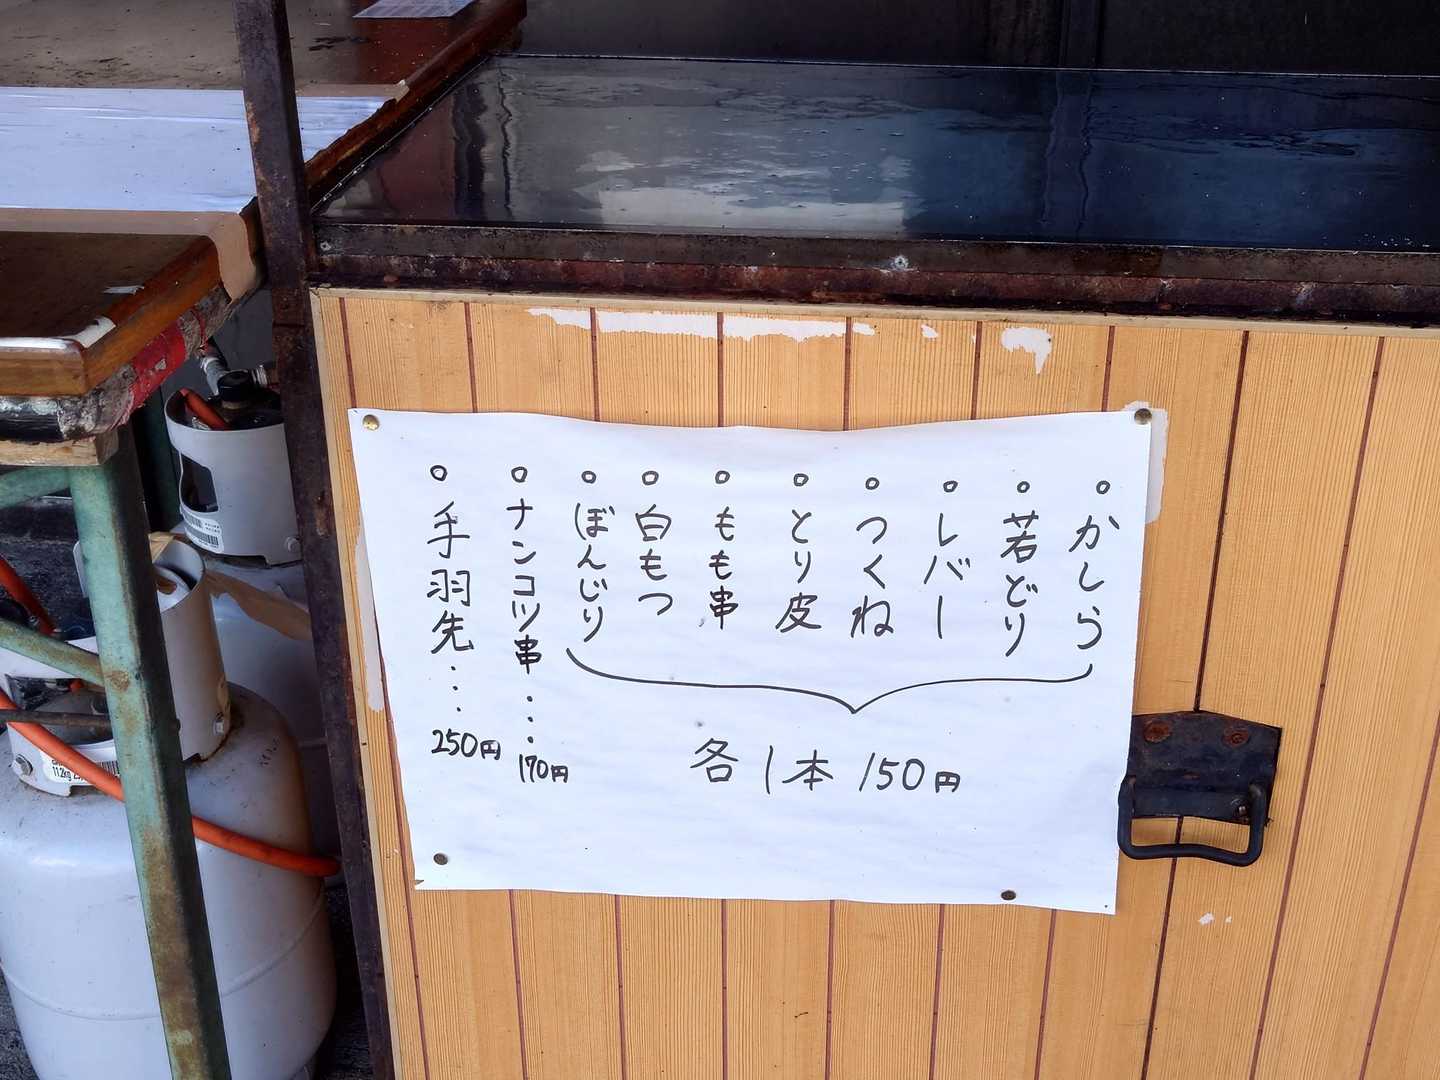 ○かしら
○若どり
○レバー
○つくね
○とり皮
○もも串
○白もつ
○ぼんじり
各1本 150円
○ナンコツ串・・・170円
○手羽先・・・250円